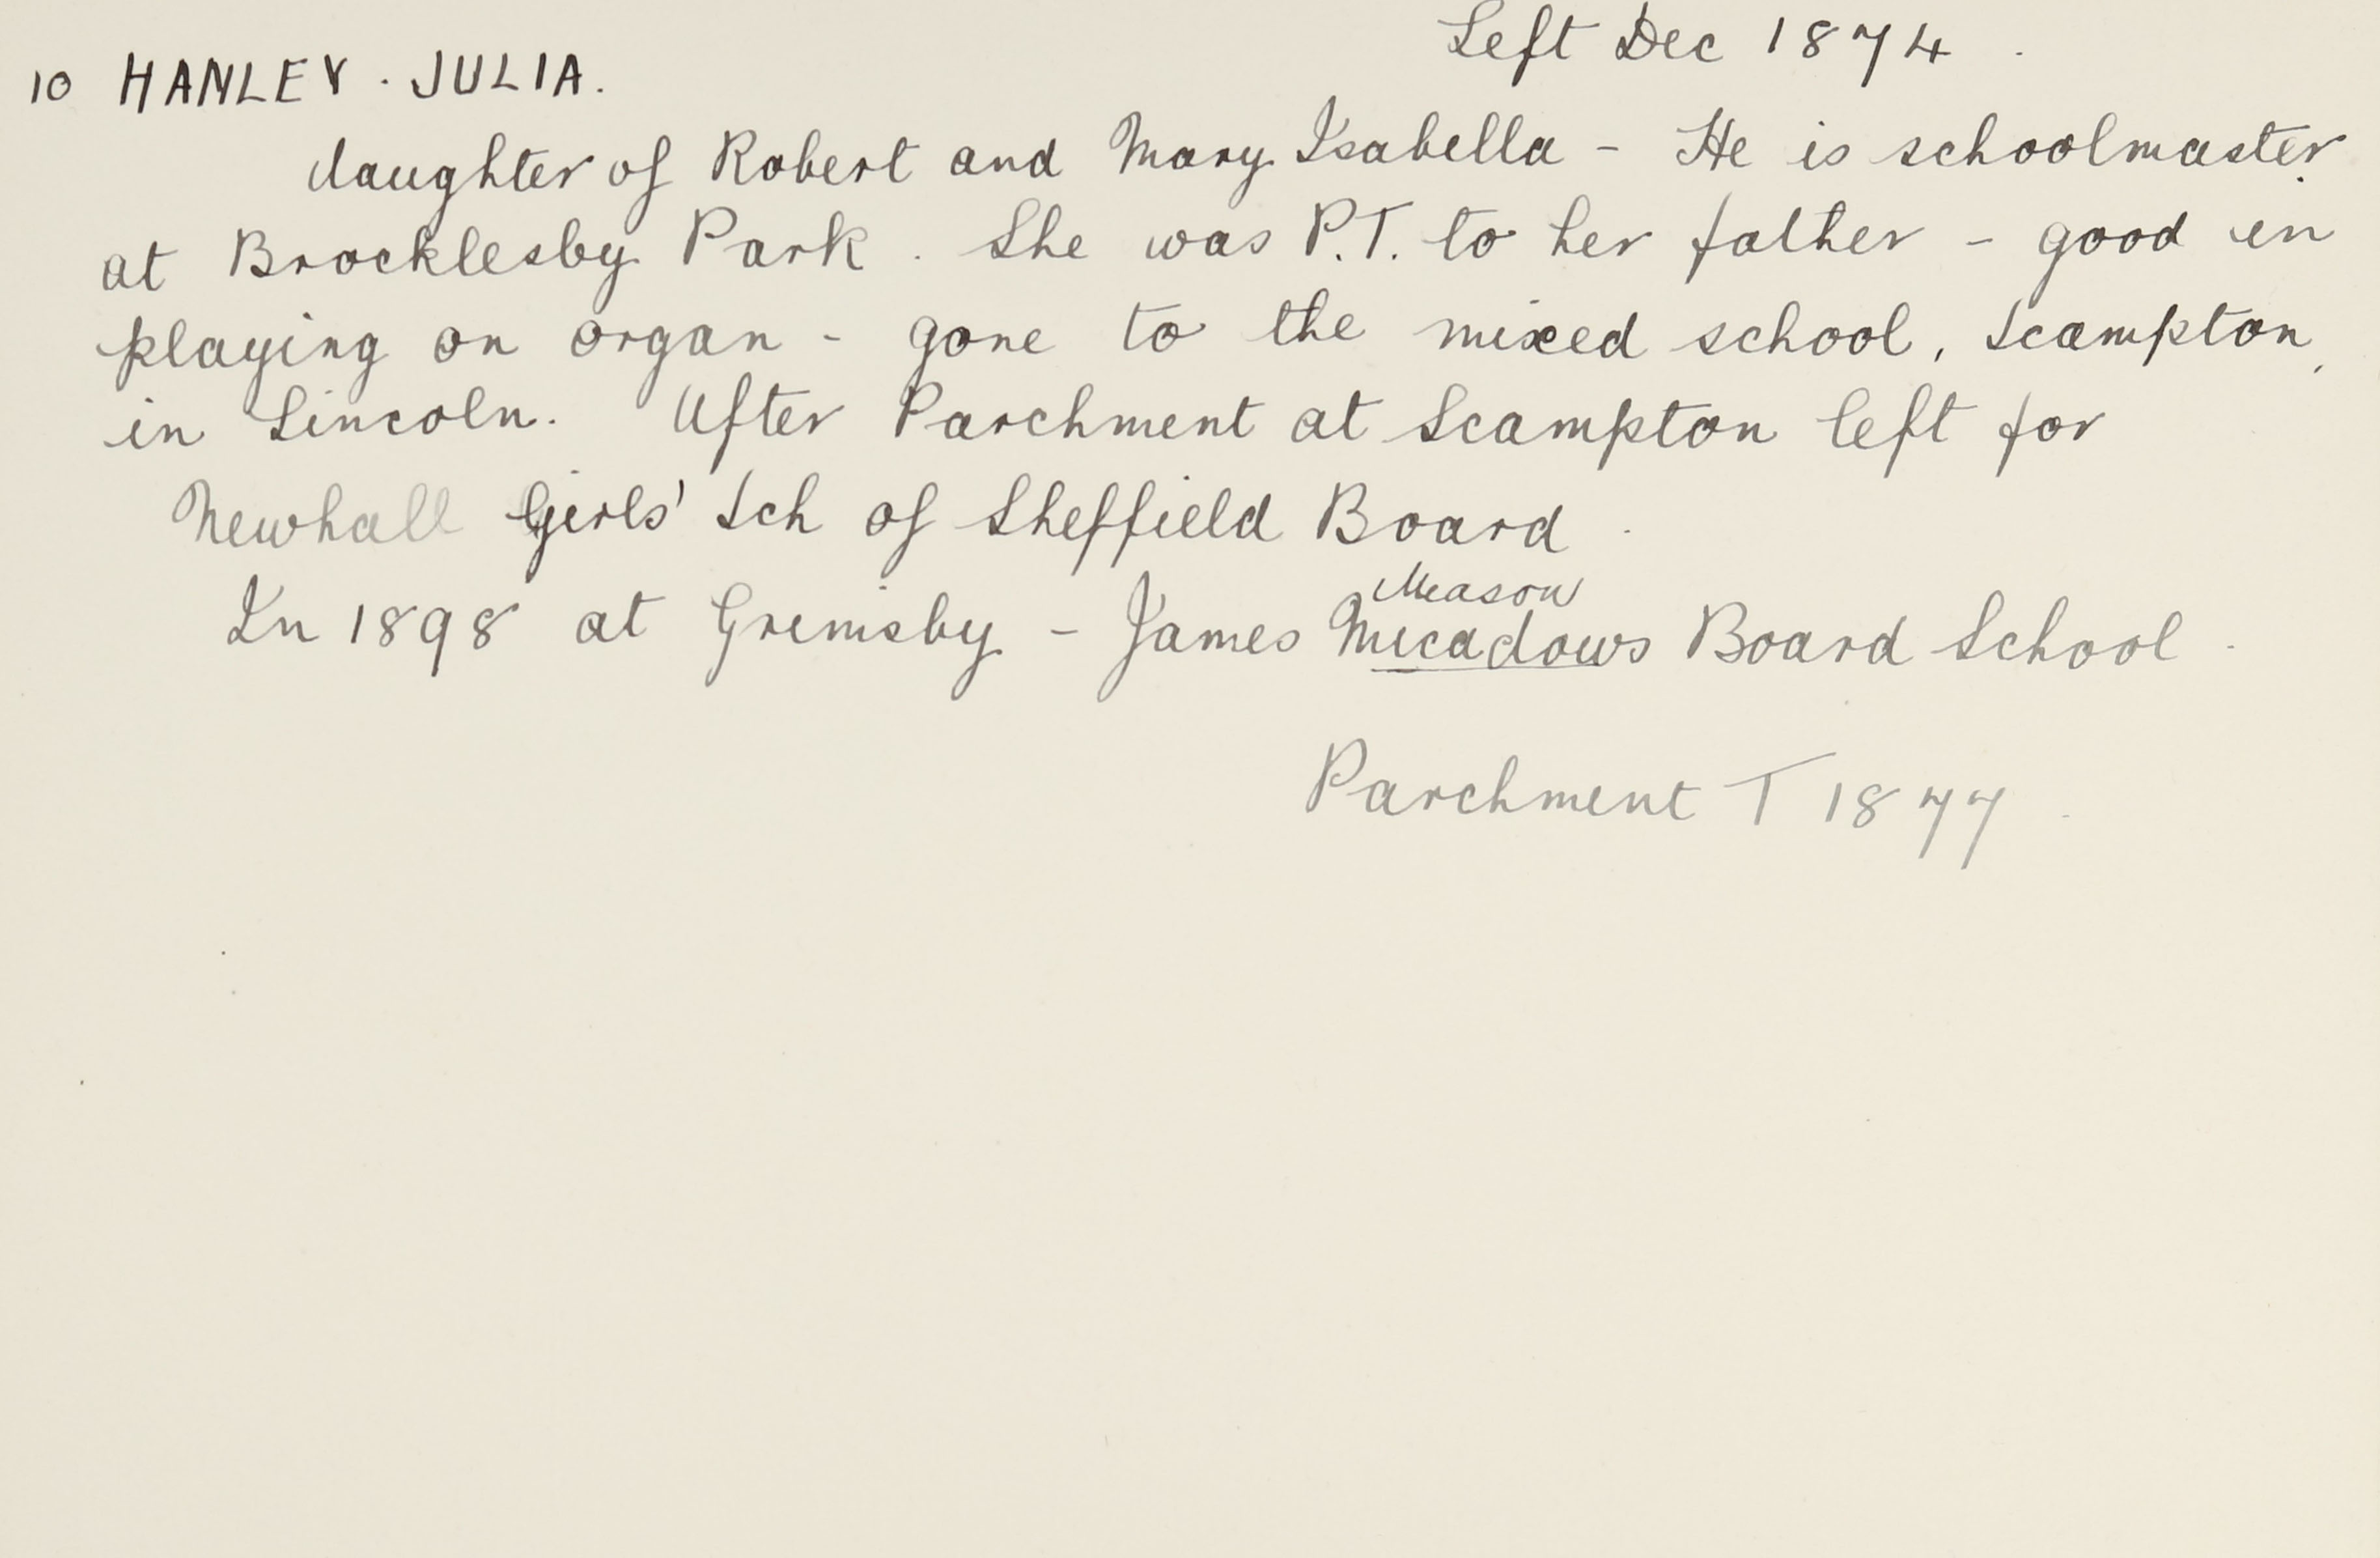 Left Dec 1874.
10 HANLEY. JULIA.
daughter of Robert and Mary Isabella - He is schoolmaster
at Brocklesby Park. She was P.T. to her father - good in
playing on organ - gone to the mixed school, Scampton,
in Lincoln. After Parchment at Scampton left for
Newhall Girls' Sch of Sheffield Board.
Meason
In 1898 at Grimsby - James Meadows Board School.
Parchment T 1877.